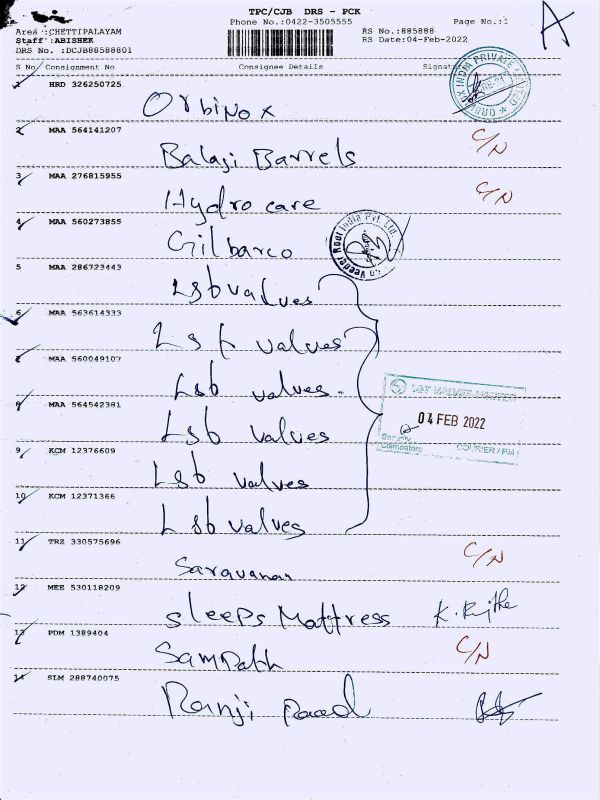 TPC/CJB DRS - PCK
Phone No.:0422-3505555
Page No.:1
A
Area :CHETTIPALAYAM
RS No.:885888
Staff :ABISHEK
RS Date:04-Feb-2022
DRS No. :DCJB88588801
S No Consignment No Consignee Details Signat
1 HRD 326250725
Orbinox
2 MAA 564141207
C/N
Balaji Barrels
3 MAA 276815955
C/N
Hydro care
4 MAA 560273855
Gilbarco
Veeder Root India Pvt. Ltd.
5 MAA 286723443
L&b valves
6 MAA 563614333
L&t valves
7 MAA 560049107
L&b valves.
L&T VALVES LIMITED
8 MAA 564542381
04 FEB 2022
L&b valves
Security
Coimbatore
COURIER / P.M
9 KCM 12376609
L&b valves
10 KCM 12371366
L&b valves
11 TRZ 330575696
C/N
Saravanan
12 MEE 530118209
Sleeps Mattress
13 PDM 1389404
C/N
Sampath
14 SLM 288740075
Ranji